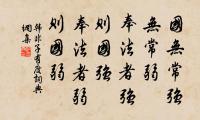 國無常強
無常弱
奉法者強
則國強
奉法者弱
則國弱
韓非子有度詞典
網集